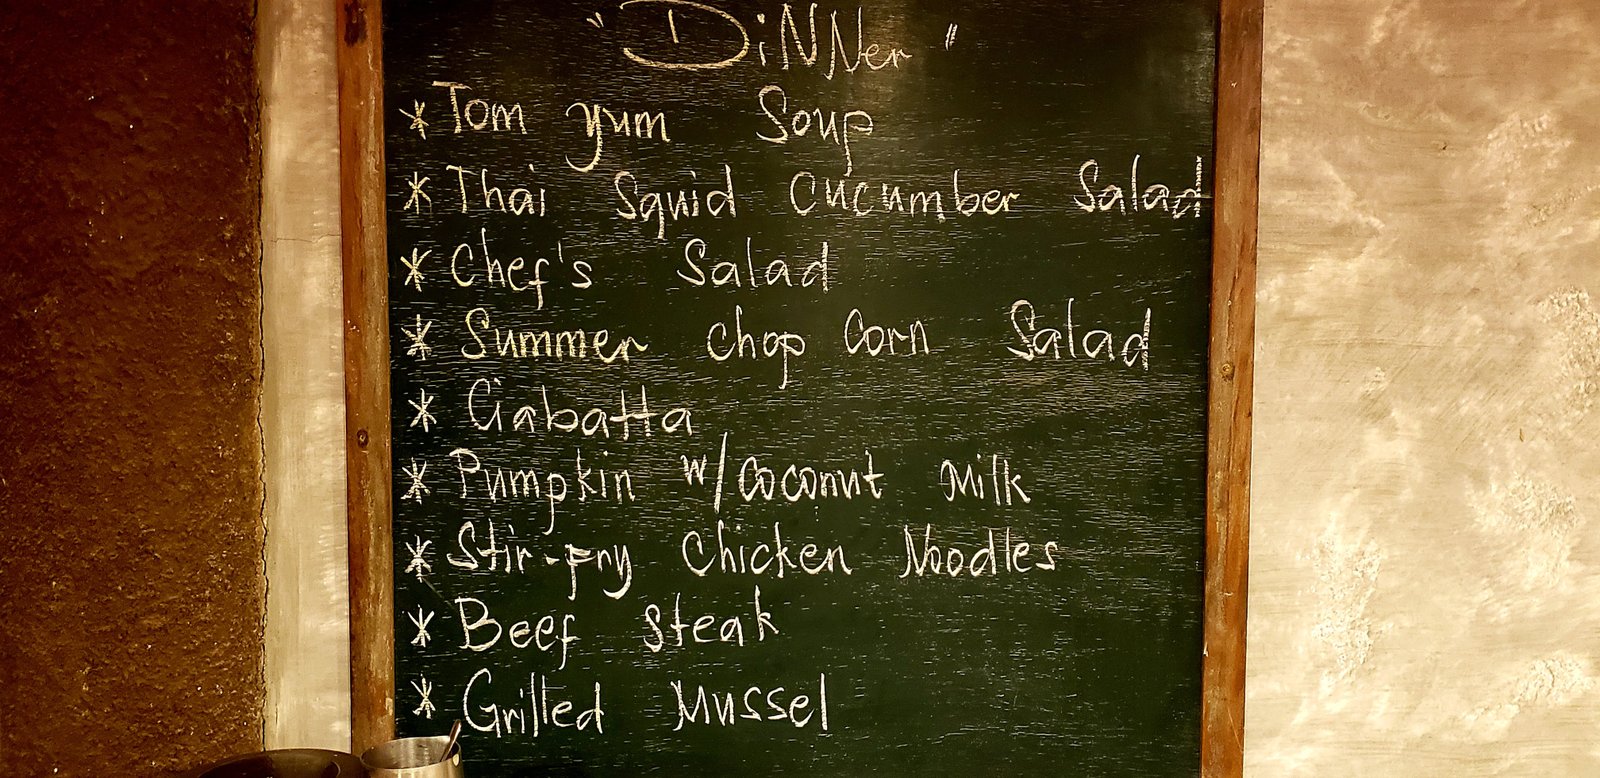 "DiNNer"
* Tom yum Soup
* Thai Squid Cucumber Salad
* Chef's Salad
* Summer Chop Corn Salad
* Ciabatta
* Pumpkin w/Coconut Milk
* Stir-fry Chicken Noodles
* Beef Steak
* Grilled Mussel